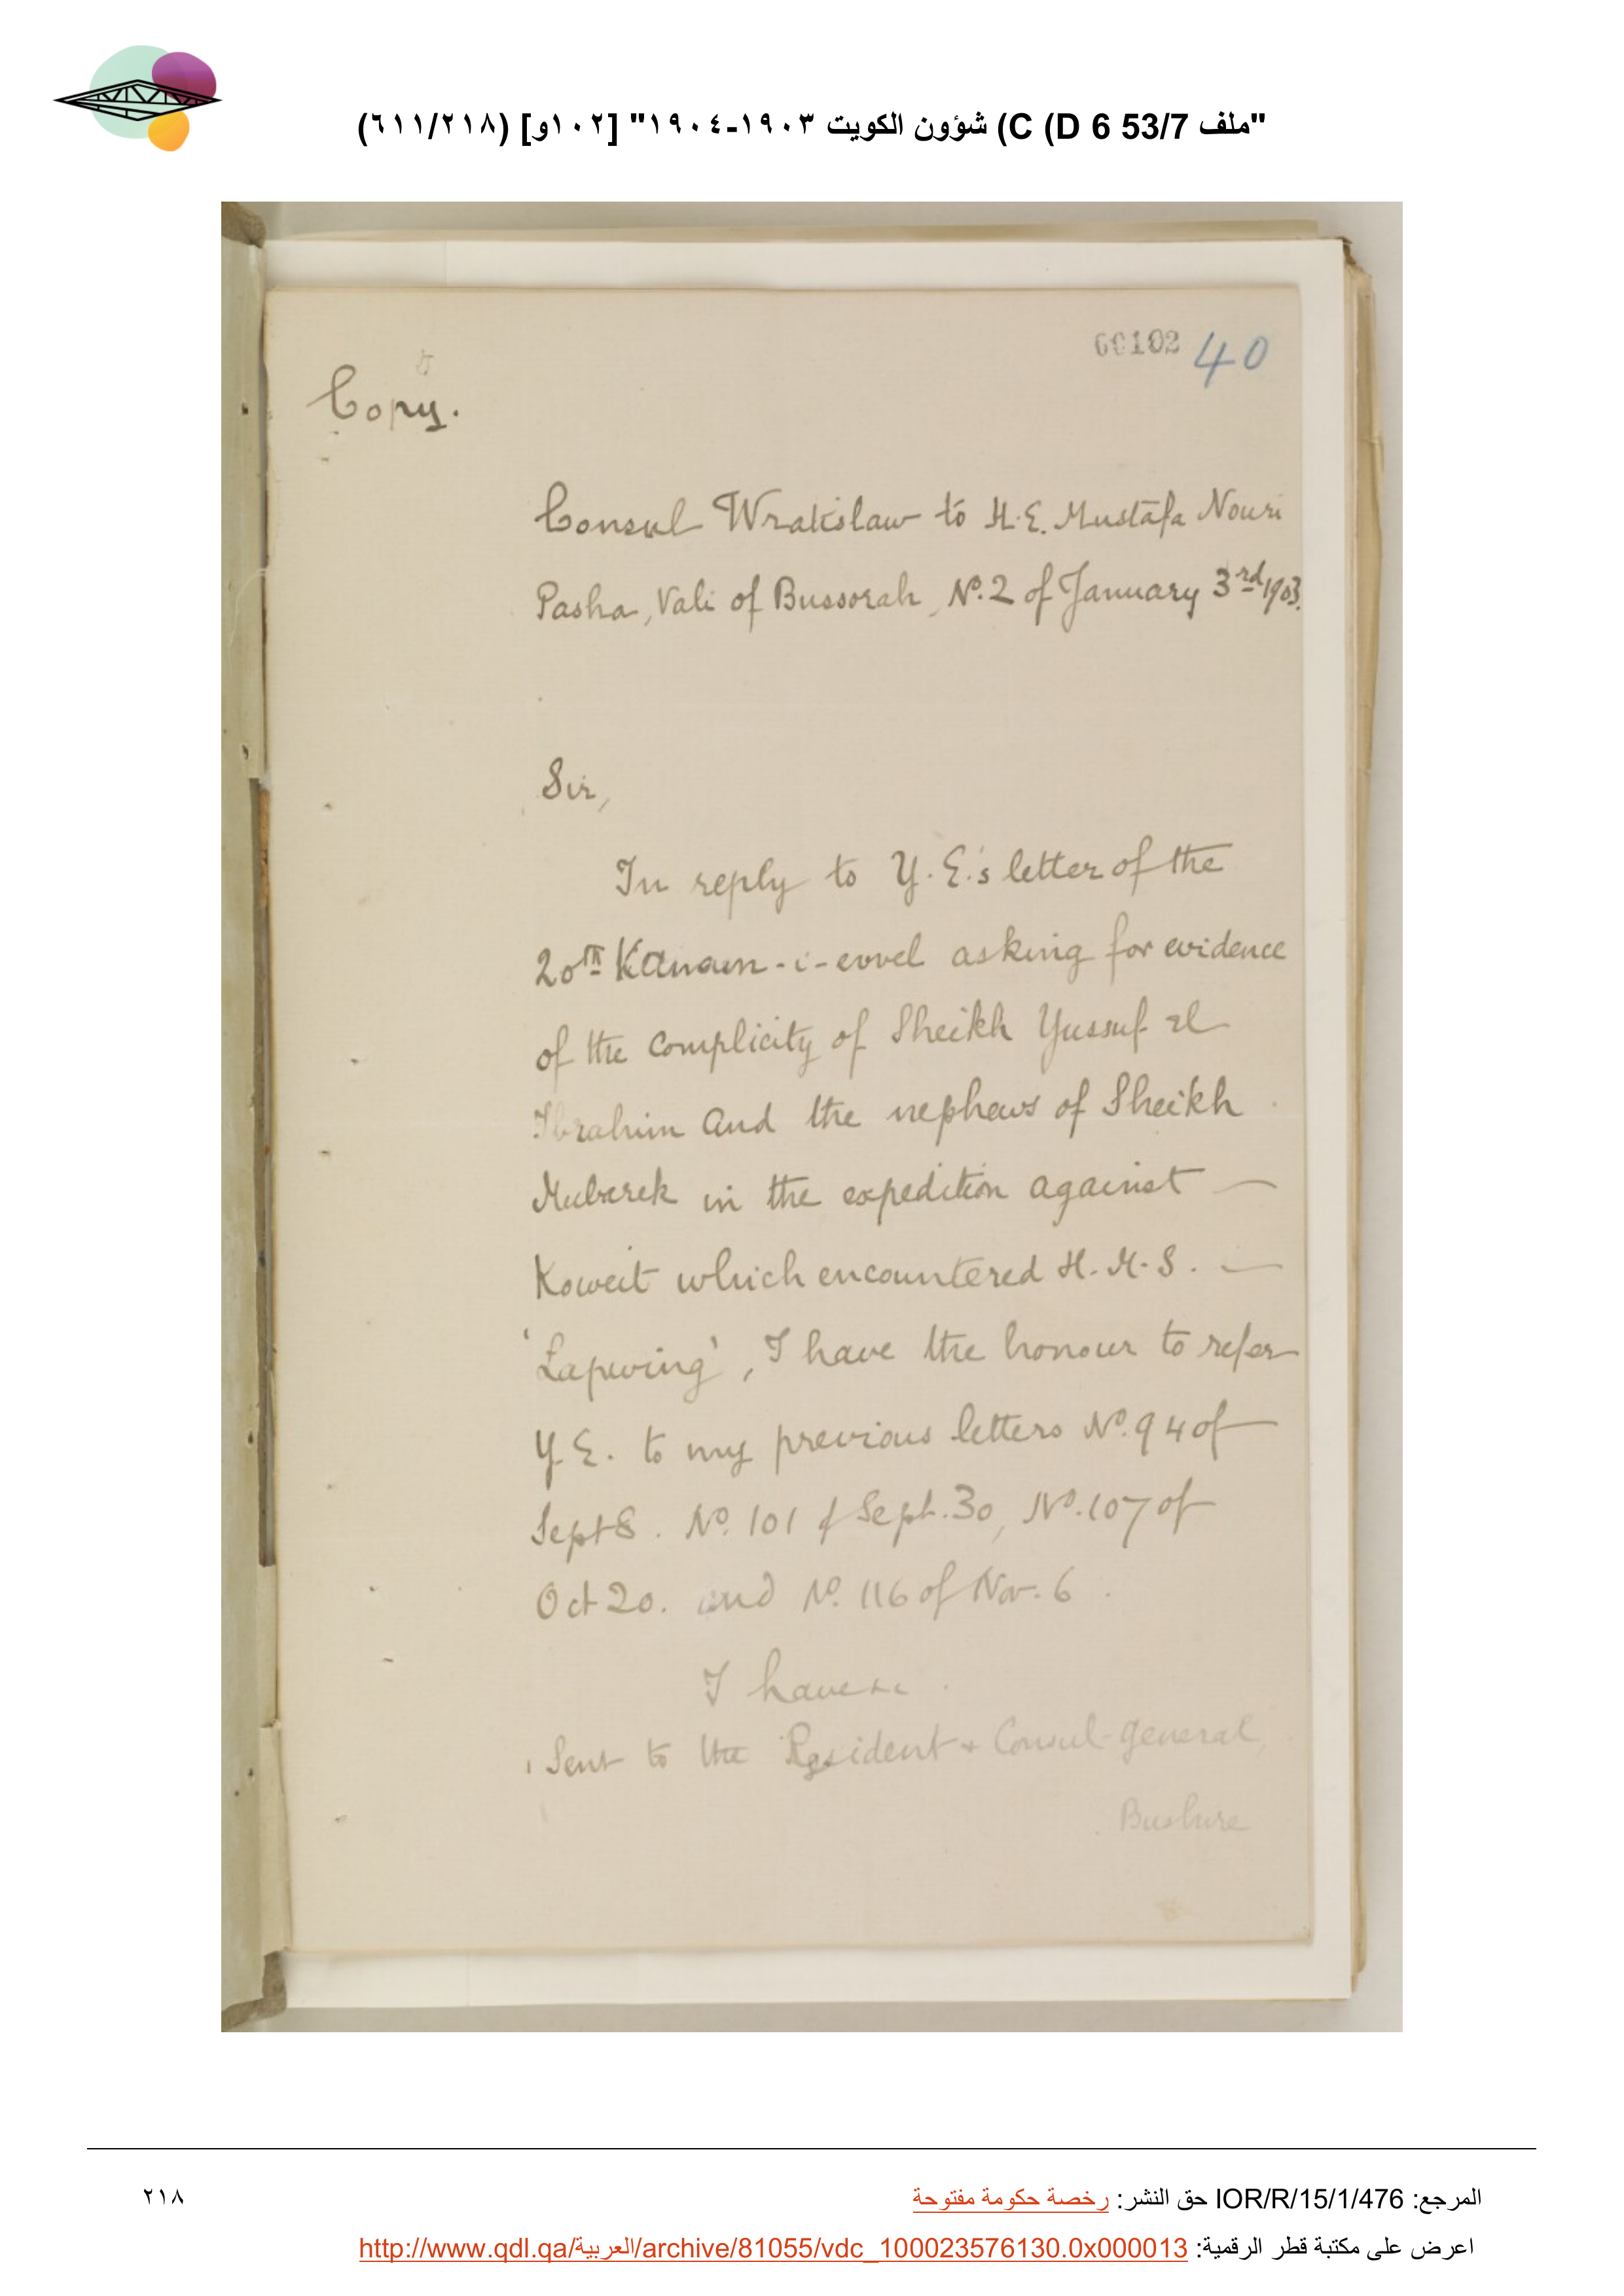 "ملف 53/7 C (D 6) شؤون الكويت ١٩٠٣-١٩٠٤" [١٠٢و] (٦١١/٢١٨)
00102 40
Copy.
Consul Wratislaw to H.E. Mustafa Nouri
Pasha, Vali of Bussorah, No. 2 of January 3rd 1903.
Sir,
In reply to Y.E.'s letter of the
20th Kanoun-i-evvel asking for evidence
of the complicity of Sheikh Yussuf el
Ibrahim and the nephews of Sheikh
Muberek in the expedition against
Koweit which encountered H.M.S.
'Lapwing', I have the honour to refer
Y.E. to my previous letters No. 94 of
Sept 8. No. 101 of Sept. 30, No. 107 of
Oct 20. and No. 116 of Nov. 6.
I have &c.
Sent to the Resident & Consul-General,
Bushire
المرجع: IOR/R/15/1/476 حق النشر: رخصة حكومة مفتوحة
٢١٨
اعرض على مكتبة قطر الرقمية: http://www.qdl.qa/العربية/archive/81055/vdc_100023576130.0x000013